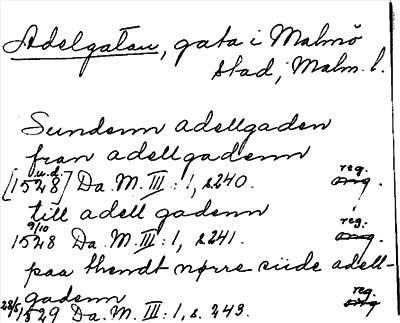 Adelgatan, gata i Malmö
stad, Malm. l.
Sunden adellgaden
fran adellgadenn
[1528 u.d.] Da. M. III: 1, s. 240. reg. orig.
till adellgadenn
9/10 1528 Da. M. III: 1, s. 241. reg. orig.
paa thendt nørre siide adell-
gadenn
28/5 1529 Da. M. III: 1, s. 243. reg. orig